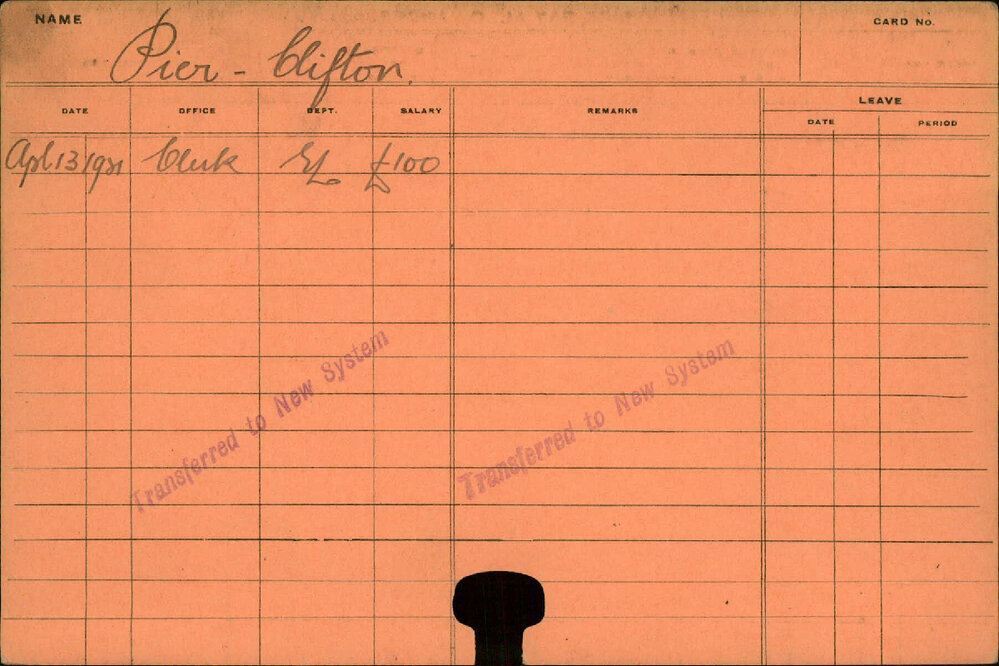 NAME
CARD No.
Pier - Clifton.
DATE OFFICE DEPT. SALARY REMARKS LEAVE
DATE PERIOD
Apl 13 1921 Clerk £100
Transferred to New System
Transferred to New System